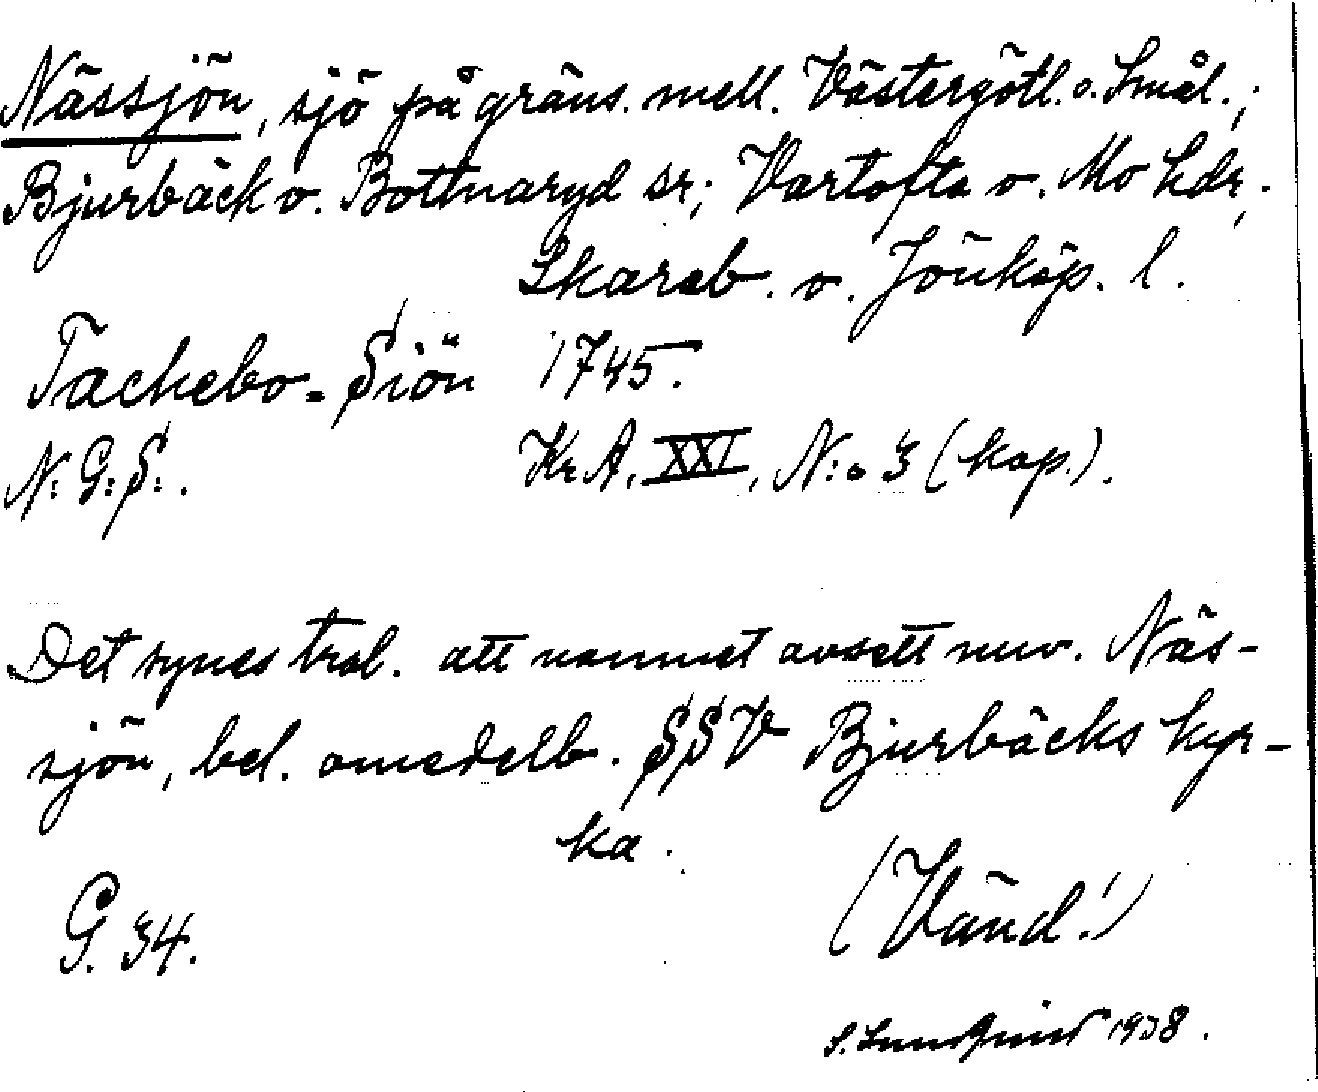 Nässjön, sjö på gräns. mell. Västergötl. o. Smål.;
Bjurbäck o. Bottnaryd sr; Vartofta o. Mo hdr,
Skarab. o. Jönköp. l.
Tachebo-Siön 1745.
N:G:S:. Kr A. XXI, N:o 3 (kop.).
Det synes trol. att namnet avsett nuv. Näs-
sjön, bel. omedelb. SSV Bjurbäcks kyr-
ka.
G. 34. (Vänd!)
S. 1938.